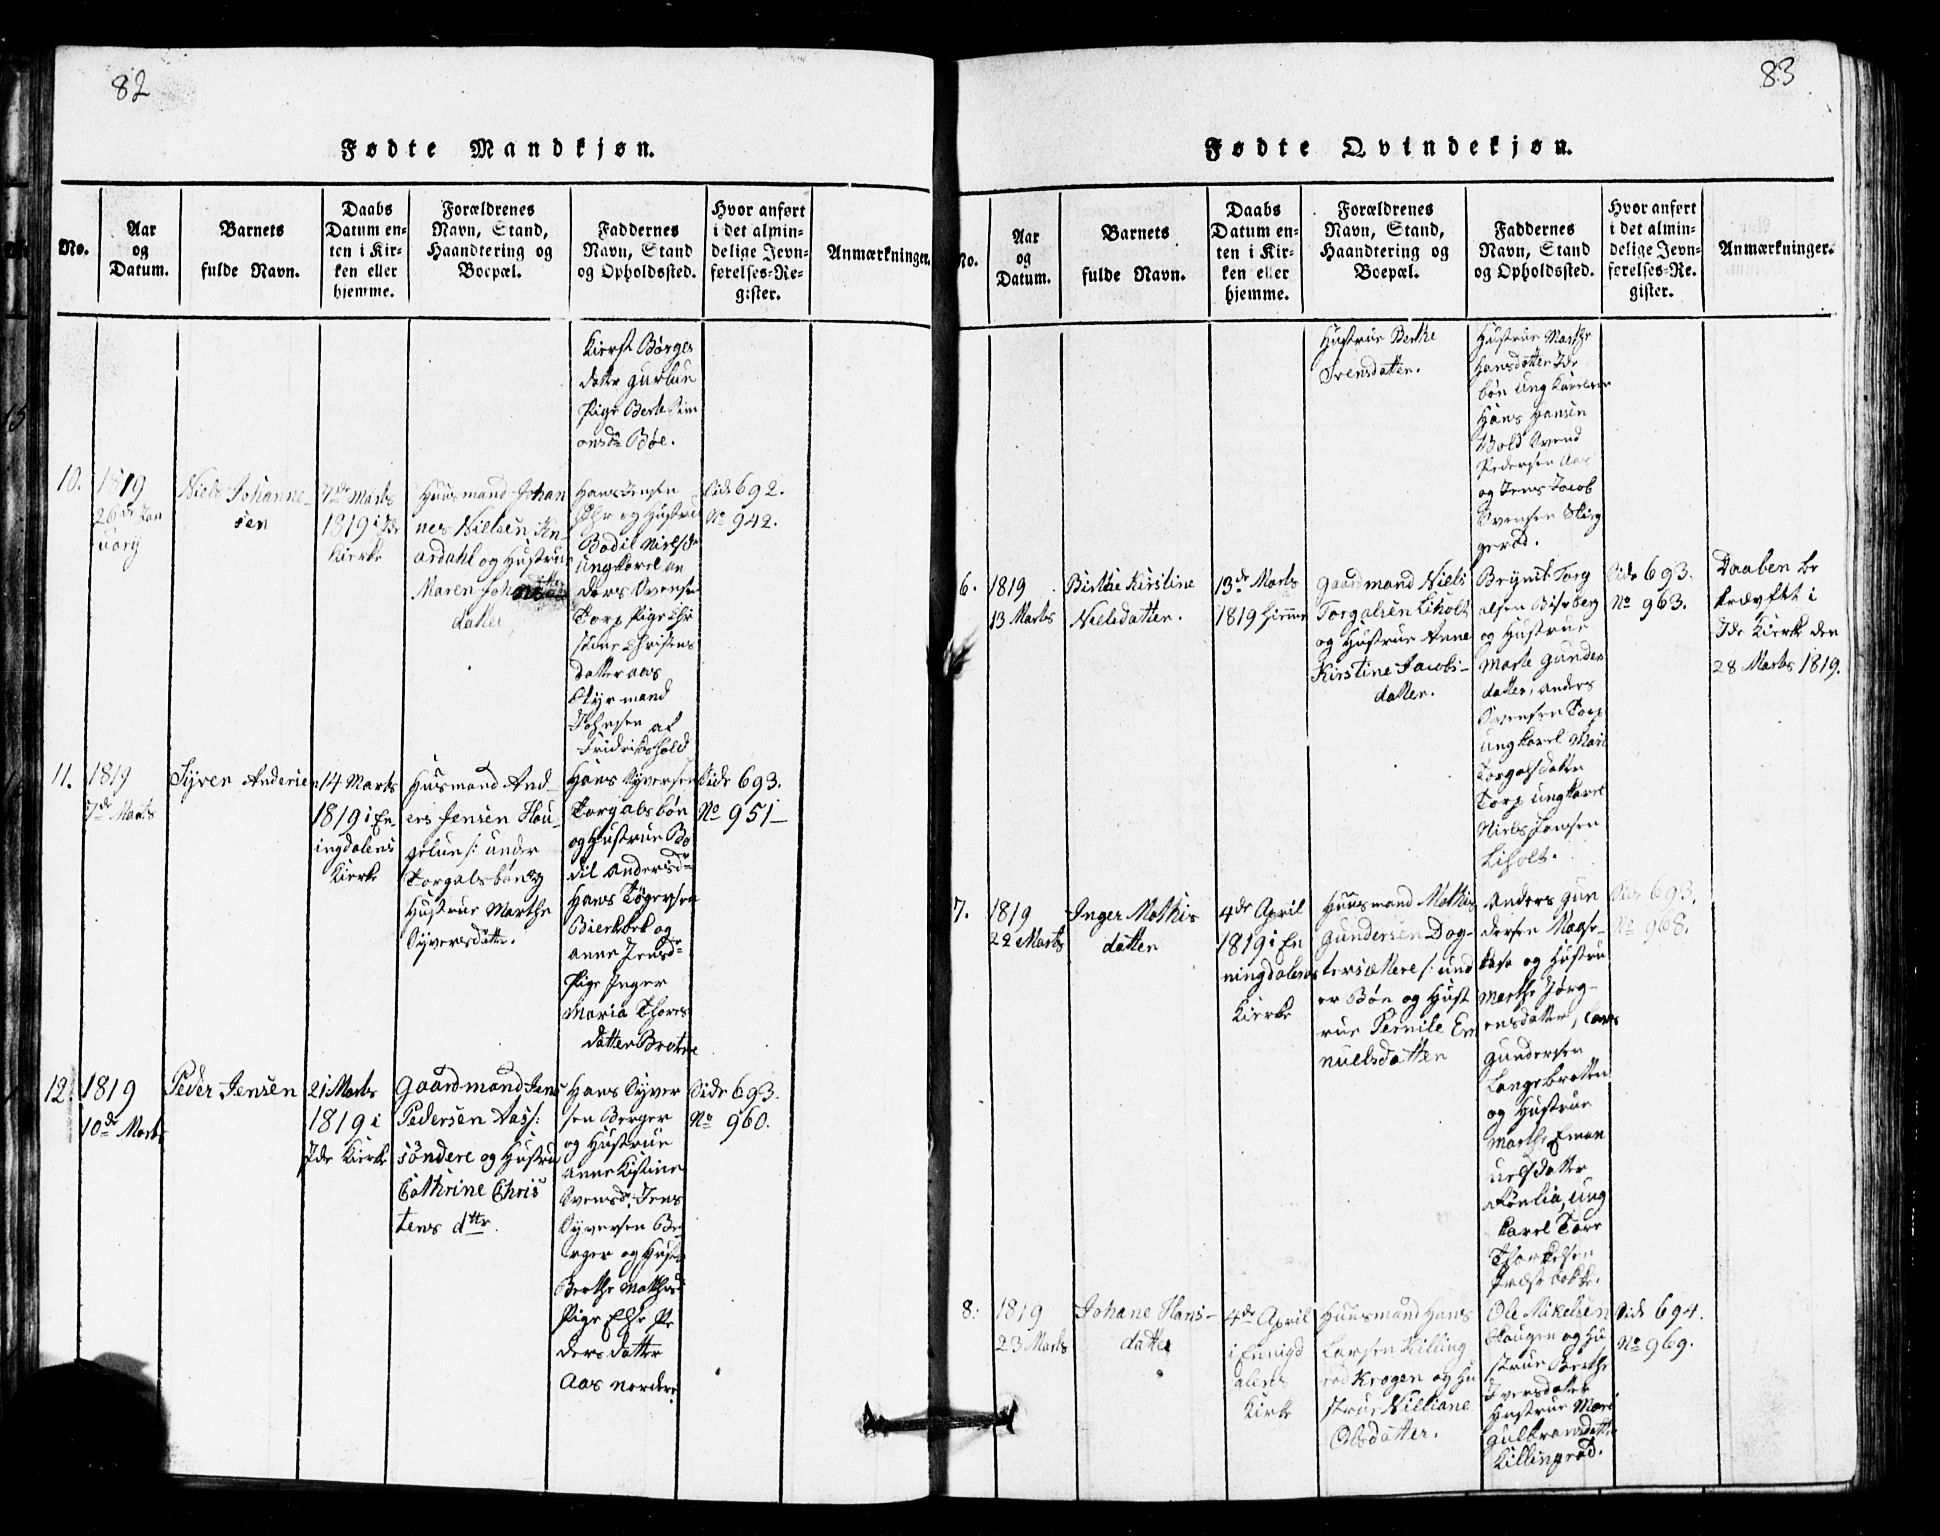 82
Fødte Mandkjøn.
No.
Aar
og
Datum.
Barnets
fulde Navn.
Daabs
Datum en-
ten i Kir-
ken eller
hjemme.
Forældrenes
Navn, Stand,
Haandtering og
Boepæl.
Faddernes
Navn, Stand
og Opholdssted.
Hvor anført
i det almin-
delige Jevn-
førelses-Re-
gister.
Anmærkninger.
Kierst Børges
datter
Pige Berte Sim
onsdr Bøe.
10.
1819
26de Jan
uarij
Niels Johanne-
sen
7de Marts
1819 i Ide
Kierke
Huusmand Johan
nes Nielsen
ardahl og Hustrue
Maren Joh
datter
Hans Jensen
og Hustrue
Bodil Nielsdr
ungkarl An
ders Svensen
Torp Pige Chr
stine Christens
datter Aas
Styrmand
Johnsen af
Fridrikshald
Side 692.
No 942.
11.
1819
7de Marts
Syver Andersen
14 Marts
1819 i En
ingdalens
Kierke
Husmand And-
ers Jensen Hou-
gelun/: under
Torgalsbøn og
Hustrue Marthe
Syversdatter.
Hans Syversen
Torgalsbøn
og Hustrue Bo
dil Andersdr
Hans Tøgersen
Bierkebek og
Anne Jensdr
Pige Inger
Maria Thores
datter Bråtne
Side 693.
No 951-
12.
1819
10de Marts
Peder Jensen
21 Marts
1819 i
Ide Kierke
Gaardmand Jens
Pedersen Aas/:
søndere og Hustrue
Cathrine Chris
tens dttr.
Hans Syver
sen Berger
og Hustrue
Anne Kistine
Svensdr Jens
Syversen Be
rger og Hustr
Berthe Mathisd
Pige Else Pe
ders datter
Aas nordre
Side 693.
No 960.
83
Fødte Qvindekjøn.
No.
Aar
og
Datum.
Barnets
fulde Navn.
Daabs
Datum en-
ten i Kir-
ken eller
hjemme.
Forældrenes
Navn, Stand,
Haandtering og
Boepæl.
Faddernes
Navn, Stand
og Opholdssted.
Hvor anført
i det almin-
delige Jevn-
førelses-Re-
gister.
Anmærkninger.
Hustrue Berthe
Svensdatter.
Hustrue Marthe
Hansdatter Ide
bøn ung Karlene
Hans Hansen
Bold Svend
Pedersen Aas
og Jens Jacob
Svensen
gerød.
6.
1819
13 Marts
Birthe Kirstine
Nielsdatter.
13de Marts
1819 hiemme
Gaardmand Niels
Torgalsen Liholt
og Hustrue Anne
Kirstine Jacobs-
datter.
Brynil Torg
alsen Bisseberg
og Hustrue
Marte Gunder
datter, Anders
Svensen Torp
ungkarl Mari
Torgalsdatter
Torp ungkarl
Niels Hansen
Liholt.
Side 693.
No 963.
Daaben be
kræftet i
Ide Kierke den
28 Marts 1819.
7.
1819
22 Marts
Inger Mathis
datter
4de April
1819 i En
ningdalens
Kierke
Huusmand Mathis
Gundersen Dog-
tersættere/: und
er Bøn og Hust
rue Pernile Em
nuelsdatter
Anders Gun
dersen
og Hustrue
Marthe Jørg-
ensdatter, Lars
Gundersen
Langebraaten
og Hustrue
Marthe Eman
uelsdatter
ung
karl Tore
Thorkelsen
Præstebakke.
Side 693.
No 968.
8.
1819
23 Marts
Johane Hans-
datter
4de April
i Ennigd
alens
Kirke
Huusmand Hans
Larsen Killing
rød Krogen og Hu
strue Nilliane
Olsdatter.
Ole Mikelsen
Haugen og Hu
strue Berthe
Iversdatter
Hustrue Mari
Gulbransdatter
Killingrød.
Side 694.
No 969.